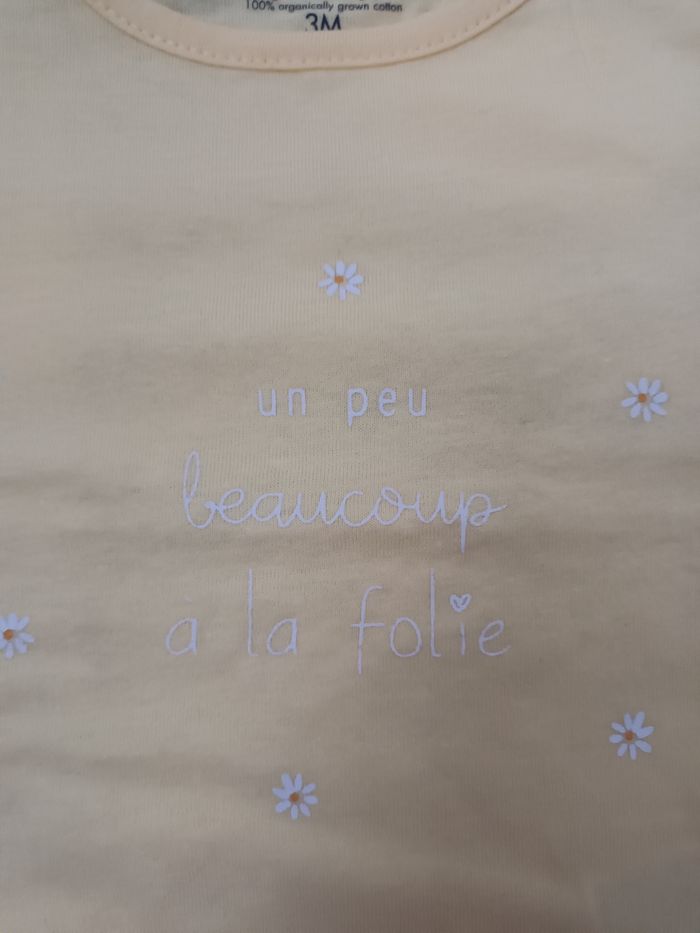 100% organically grown cotton
3M
un peu
beaucoup
à la folie